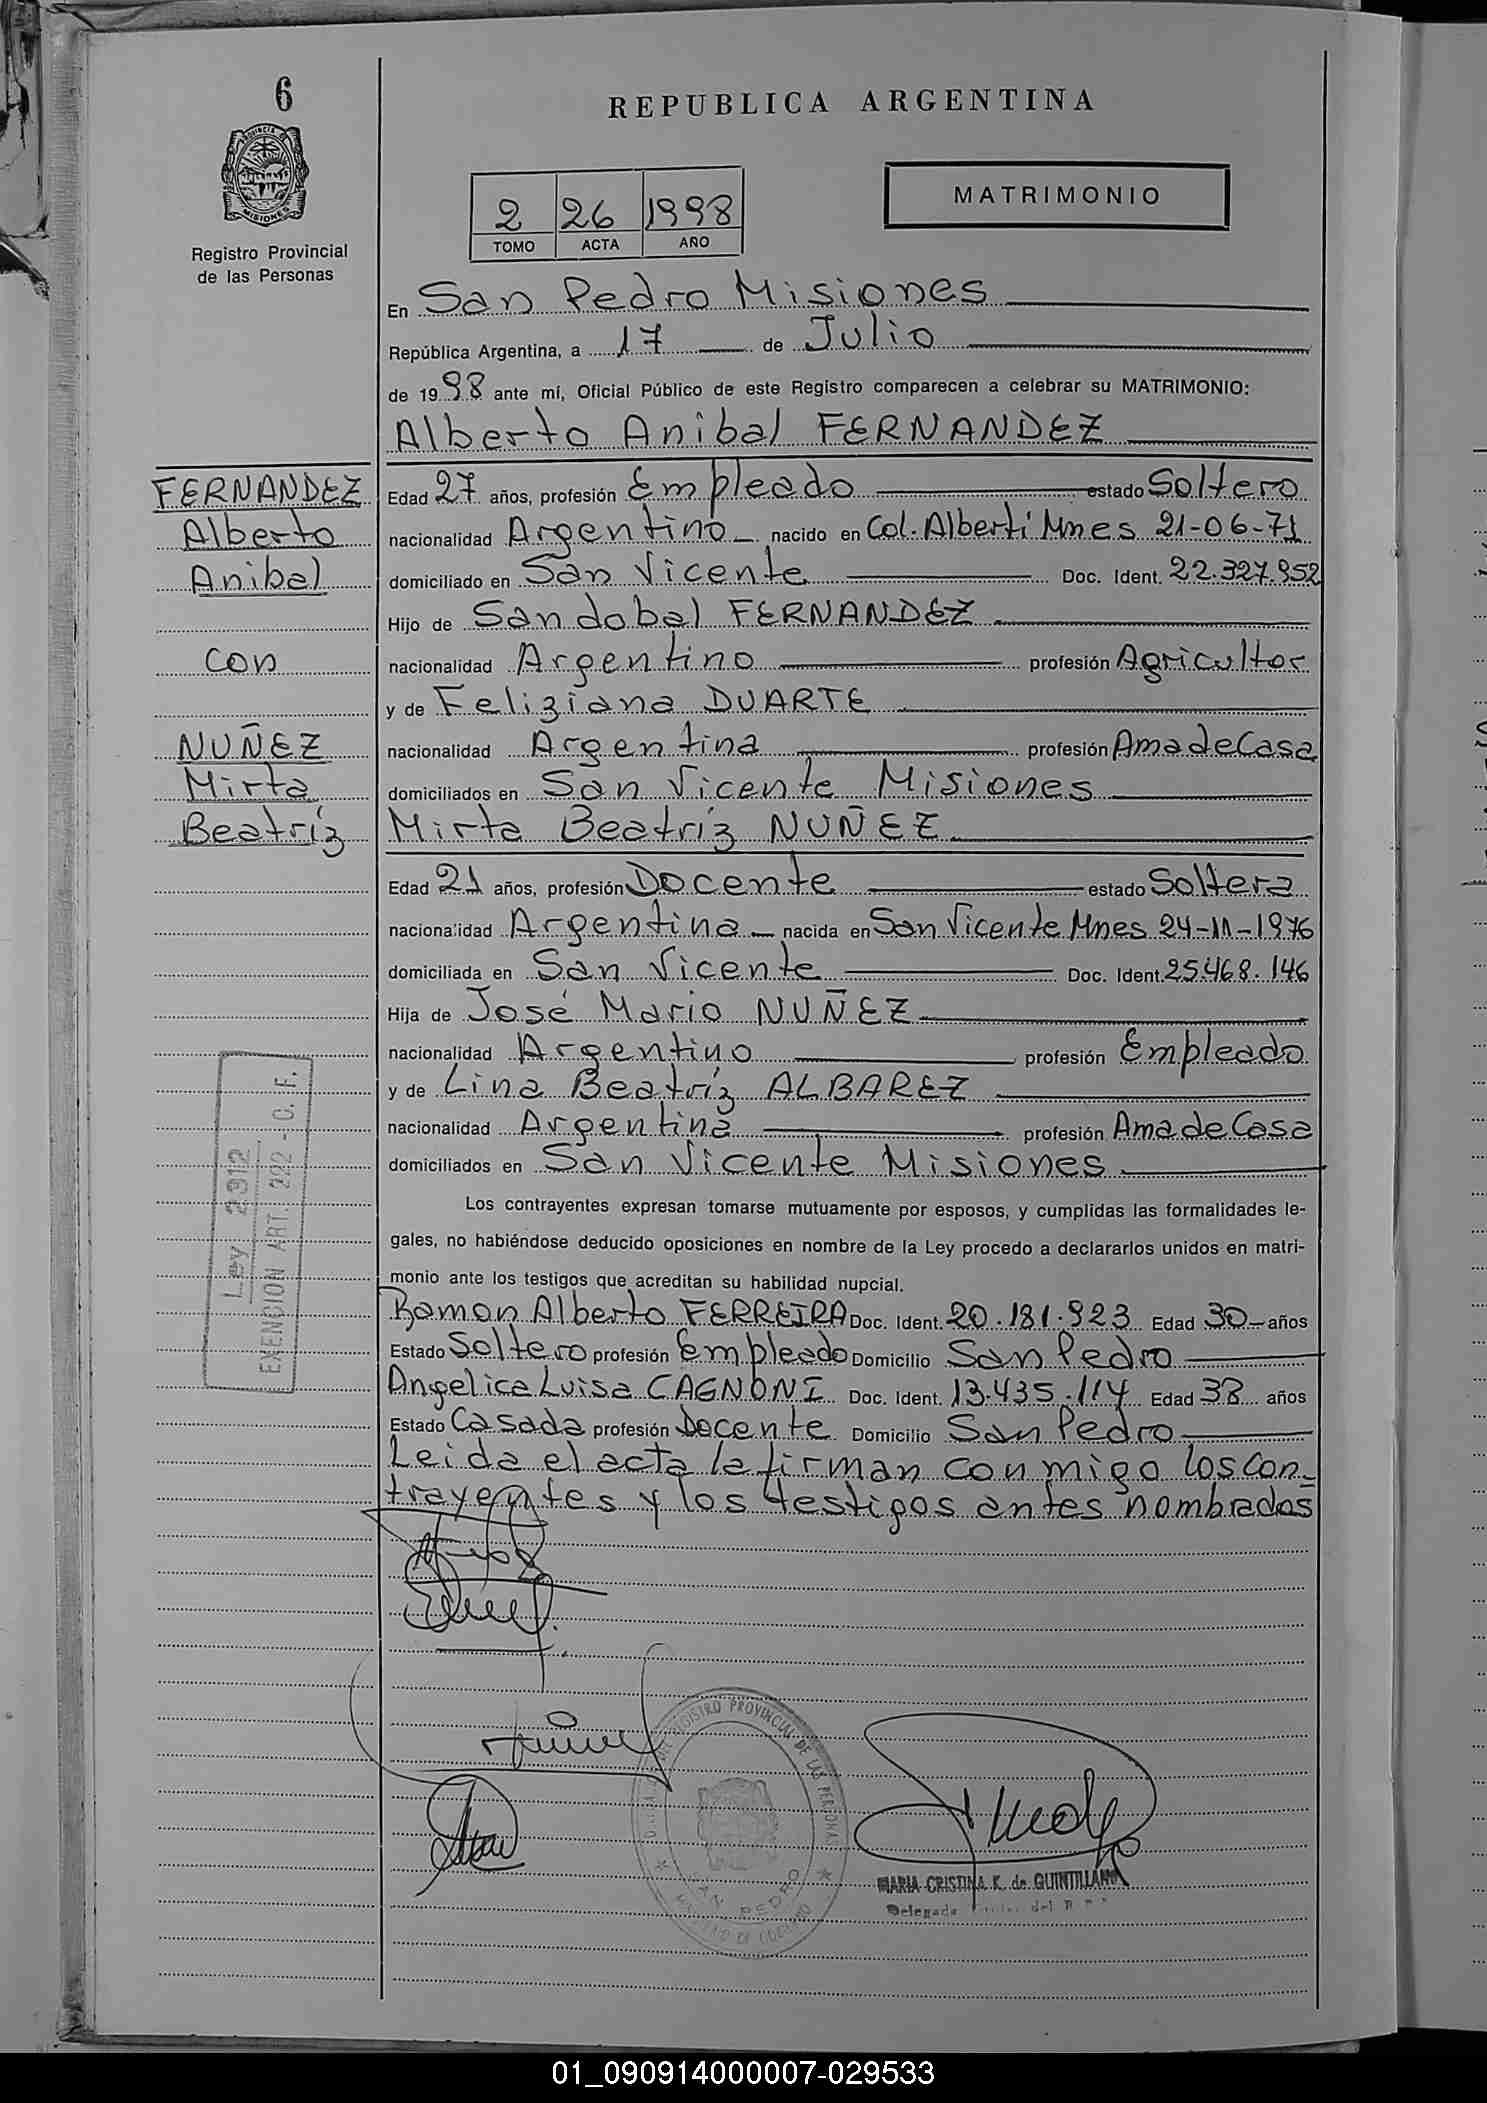 6
REPUBLICA ARGENTINA
PROVINCIA DE
MISIONES
Registro Provincial
de las Personas
MATRIMONIO
2 26 1998
TOMO ACTA AÑO
En San Pedro Misiones
República Argentina, a 17 de Julio
de 1998 ante mí, Oficial Público de este Registro comparecen a celebrar su MATRIMONIO:
Alberto Anibal FERNANDEZ
FERNANDEZ
Alberto
Anibal
con
NUÑEZ
Mirta
Beatríz
Edad 27 años, profesión Empleado estado Soltero
nacionalidad Argentino nacido en Col. Alberti Mnes 21-06-71
domiciliado en San Vicente Doc. Ident. 22.327.952
Hijo de Sandobal FERNANDEZ
nacionalidad Argentino profesión Agricultor
y de Feliziana DUARTE
nacionalidad Argentina profesión Ama de Casa
domiciliados en San Vicente Misiones
Mirta Beatríz NUÑEZ
Edad 21 años, profesión Docente estado Soltera
nacionalidad Argentina nacida en San Vicente Mnes 24-11-1976
domiciliada en San Vicente Doc. Ident. 25.468.146
Hija de José Mario NUÑEZ
nacionalidad Argentino profesión Empleado
y de Lina Beatríz ALBAREZ
nacionalidad Argentina profesión Ama de Casa
domiciliados en San Vicente Misiones
Ley 2912
EXENCION ART. 222 - C. F.
Los contrayentes expresan tomarse mutuamente por esposos, y cumplidas las formalidades le-
gales, no habiéndose deducido oposiciones en nombre de la Ley procedo a declararlos unidos en matri-
monio ante los testigos que acreditan su habilidad nupcial.
Ramon Alberto FERREIRA Doc. Ident. 20.181.923 Edad 30 años
Estado Soltero profesión Empleado Domicilio San Pedro
Angelica Luisa CAGNONI Doc. Ident. 13.435.114 Edad 38 años
Estado Casada profesión Docente Domicilio San Pedro
Leida el acta la firman conmigo los con-
trayentes y los testigos antes nombrados
REGISTRO PROVINCIAL DE LAS PERSONAS
SAN PEDRO
MARIA CRISTINA K. de QUINTILLAN
Delegada
01_090914000007-029533